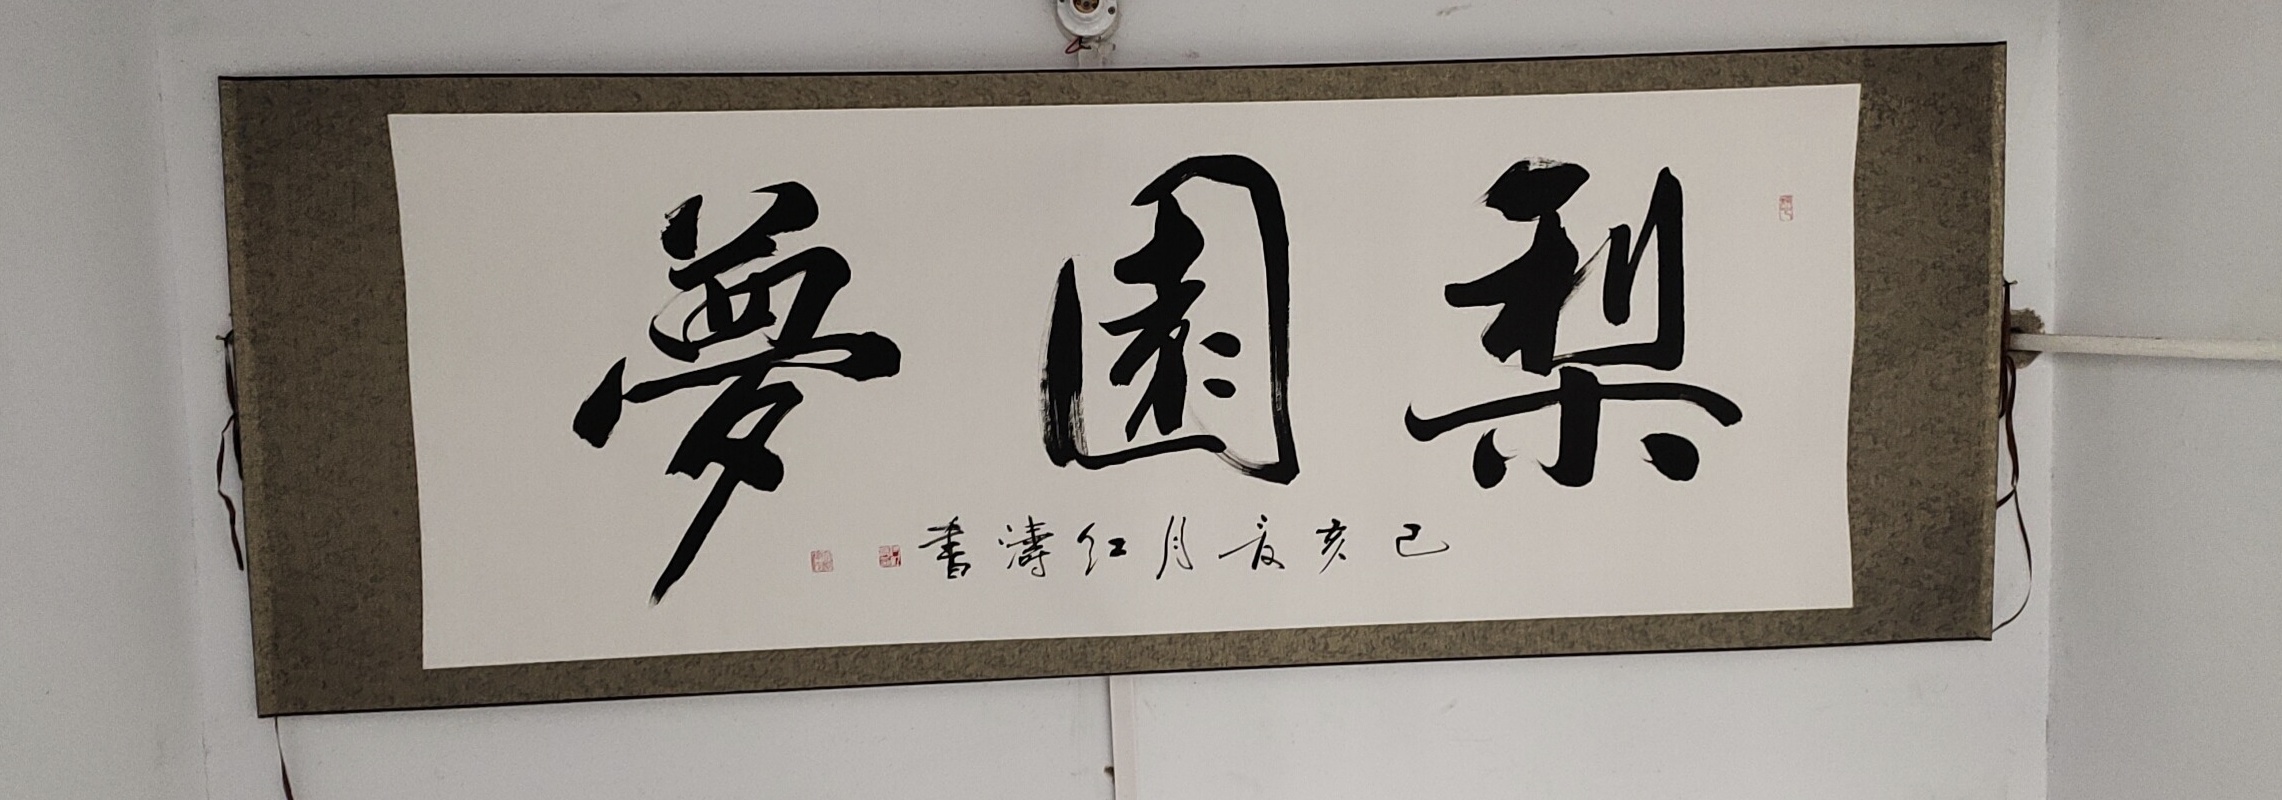 梨園夢
己亥夏月红濤書